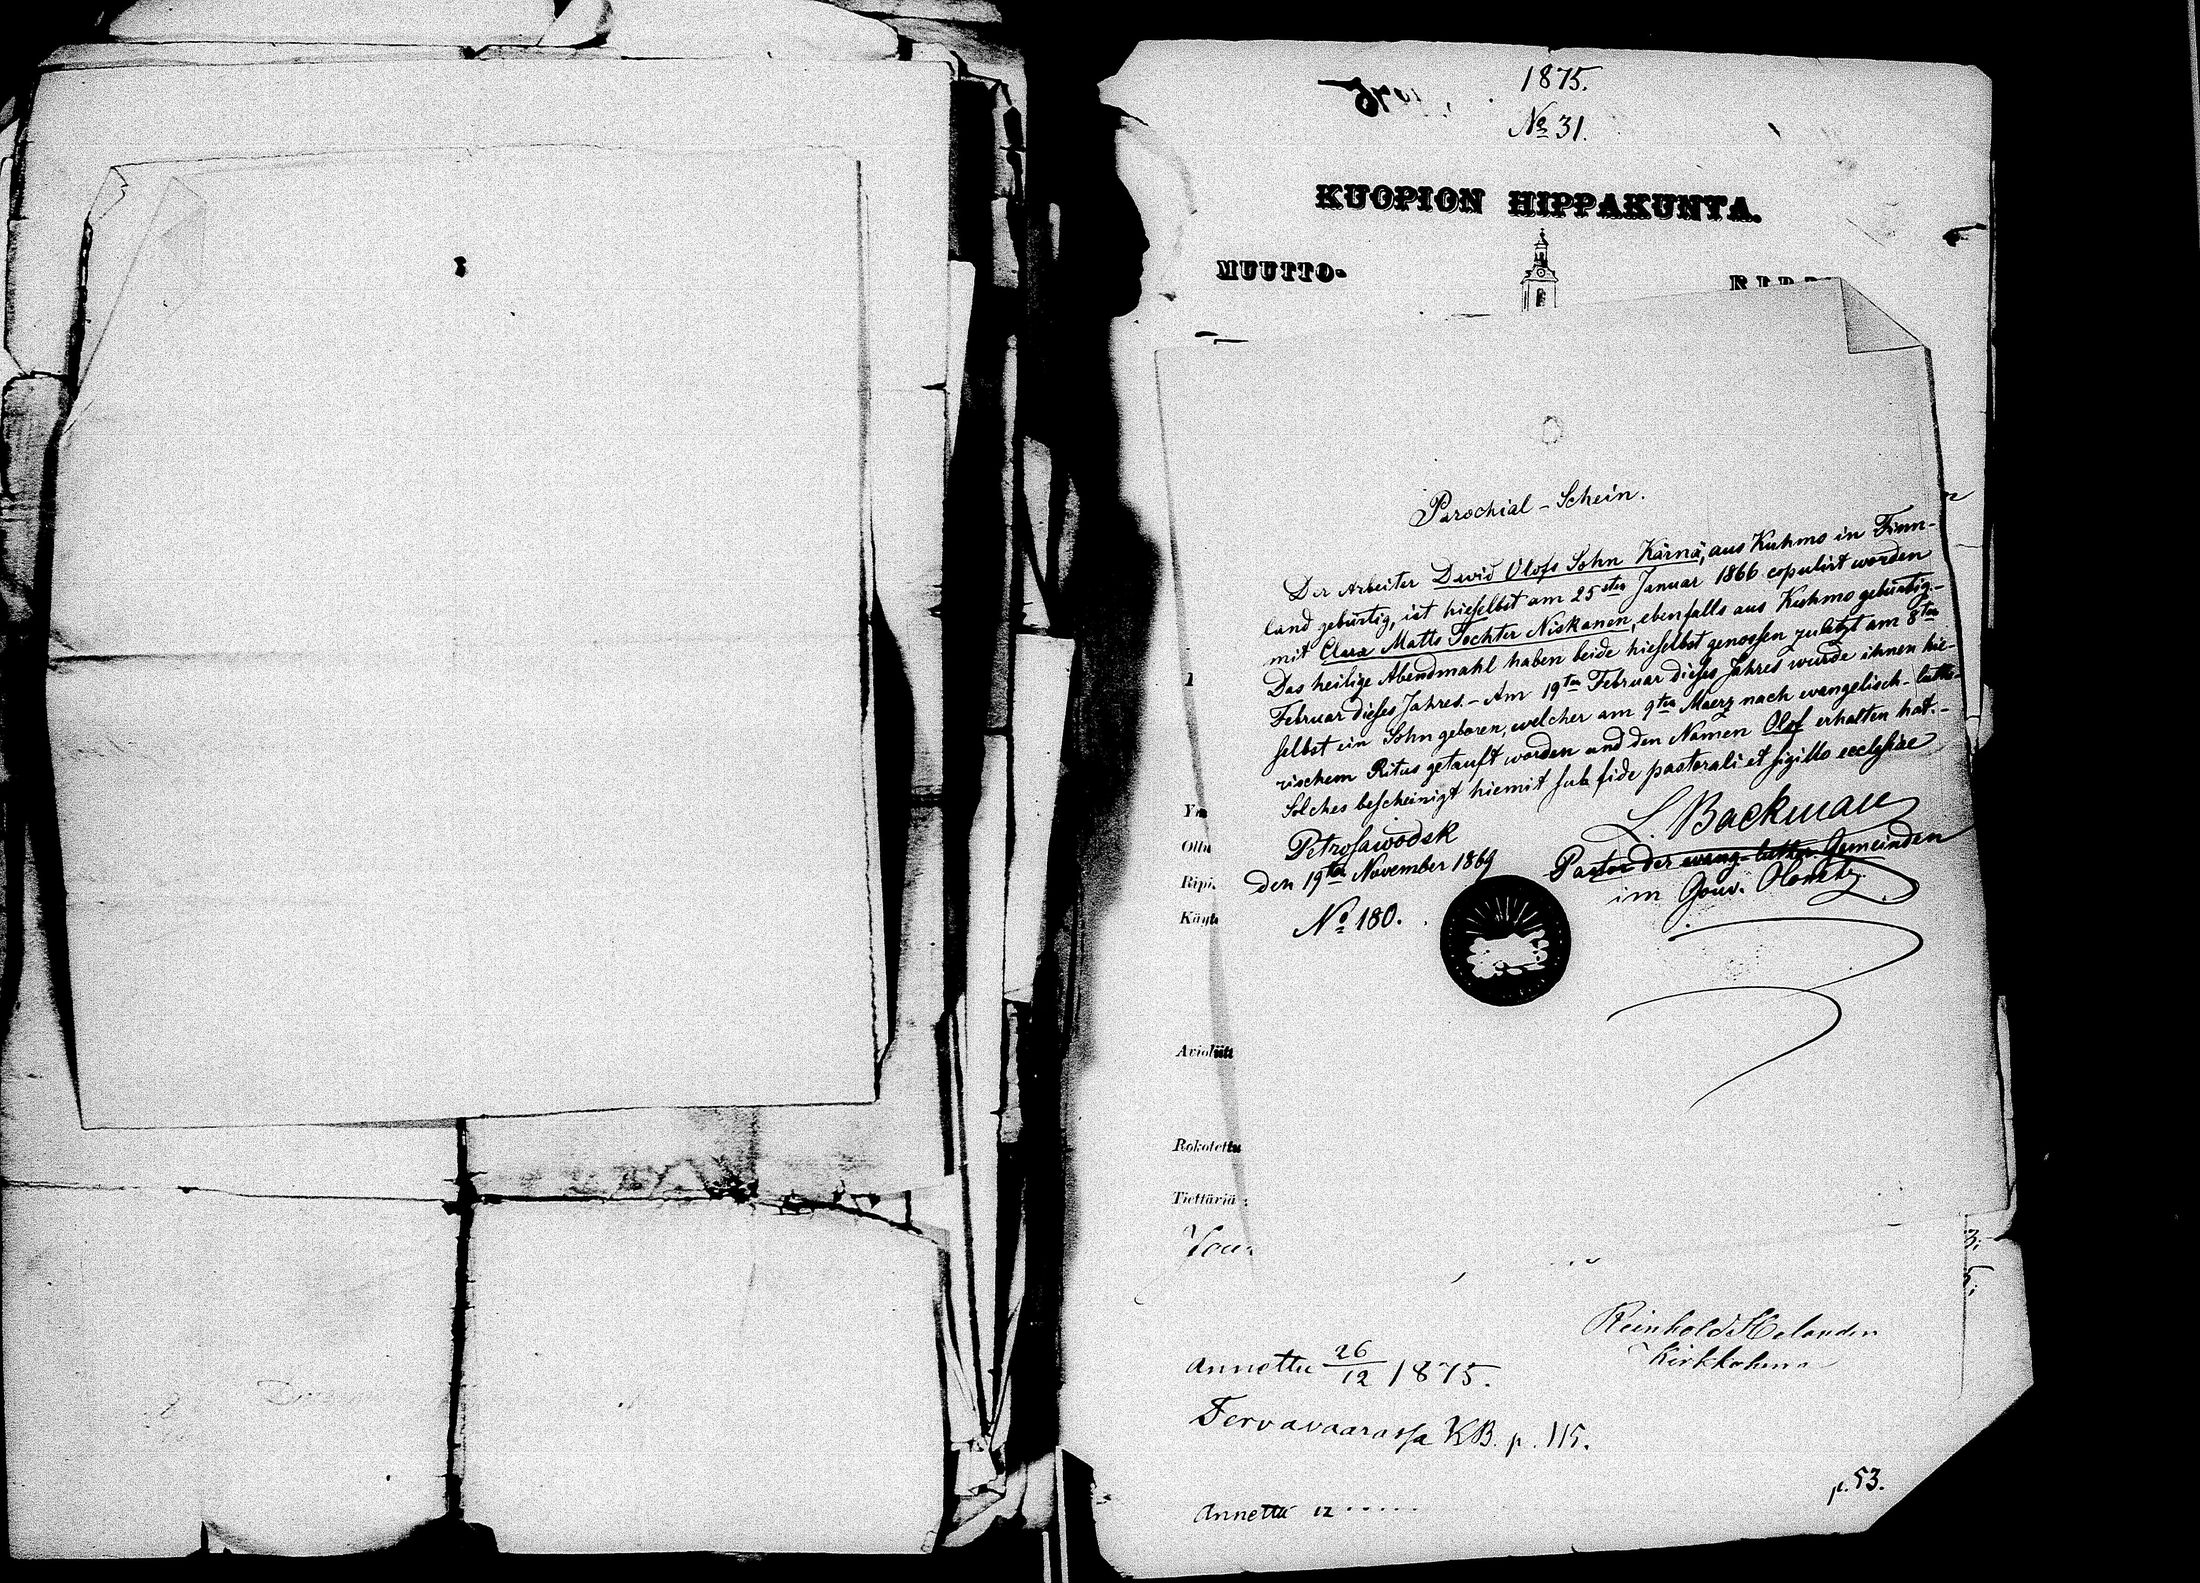 1875.
No 31.
KUOPION HIPPAKUNTA.
MUUTTO-
Parochial-Schein.
Der Arbeiter David Olofs Sohn Kärnä, aus Kuhmo in Finn-
land gebürtig, ist hieselbst am 25sten Januar 1866 copulirt worden
mit Clara Matts Tochter Niskanen, ebenfalls aus Kuhmo gebürtig.-
Das heilige Abendmahl haben beide hieselbst genossen zuletzt am 8ten
Februar dieses Jahres. - Am 19ten Februar dieses Jahres wurde ihnen hie-
selbst ein Sohn geboren, welcher am 9ten Maerz nach evangelisch-luthe-
rischem Ritus getauft worden und den Namen Olof erhalten hat.-
Solches bescheinigt hiemit sub fide pastorali et sigillo ecclesiae
Petrosawodsk
den 19ten November 1869
No 180.
L. Backman
Pastor der evang-luther. Gemeinden
im Gouv. Olonetz.
Ripi
Käyt
Avioliitt
Rokotettu
Tiettäviä :
Reinhold Helander
Annettu 26/12 1875.
Tervavaarassa KB. p. 115.
p. 53.
Annettu 12 . . . . .